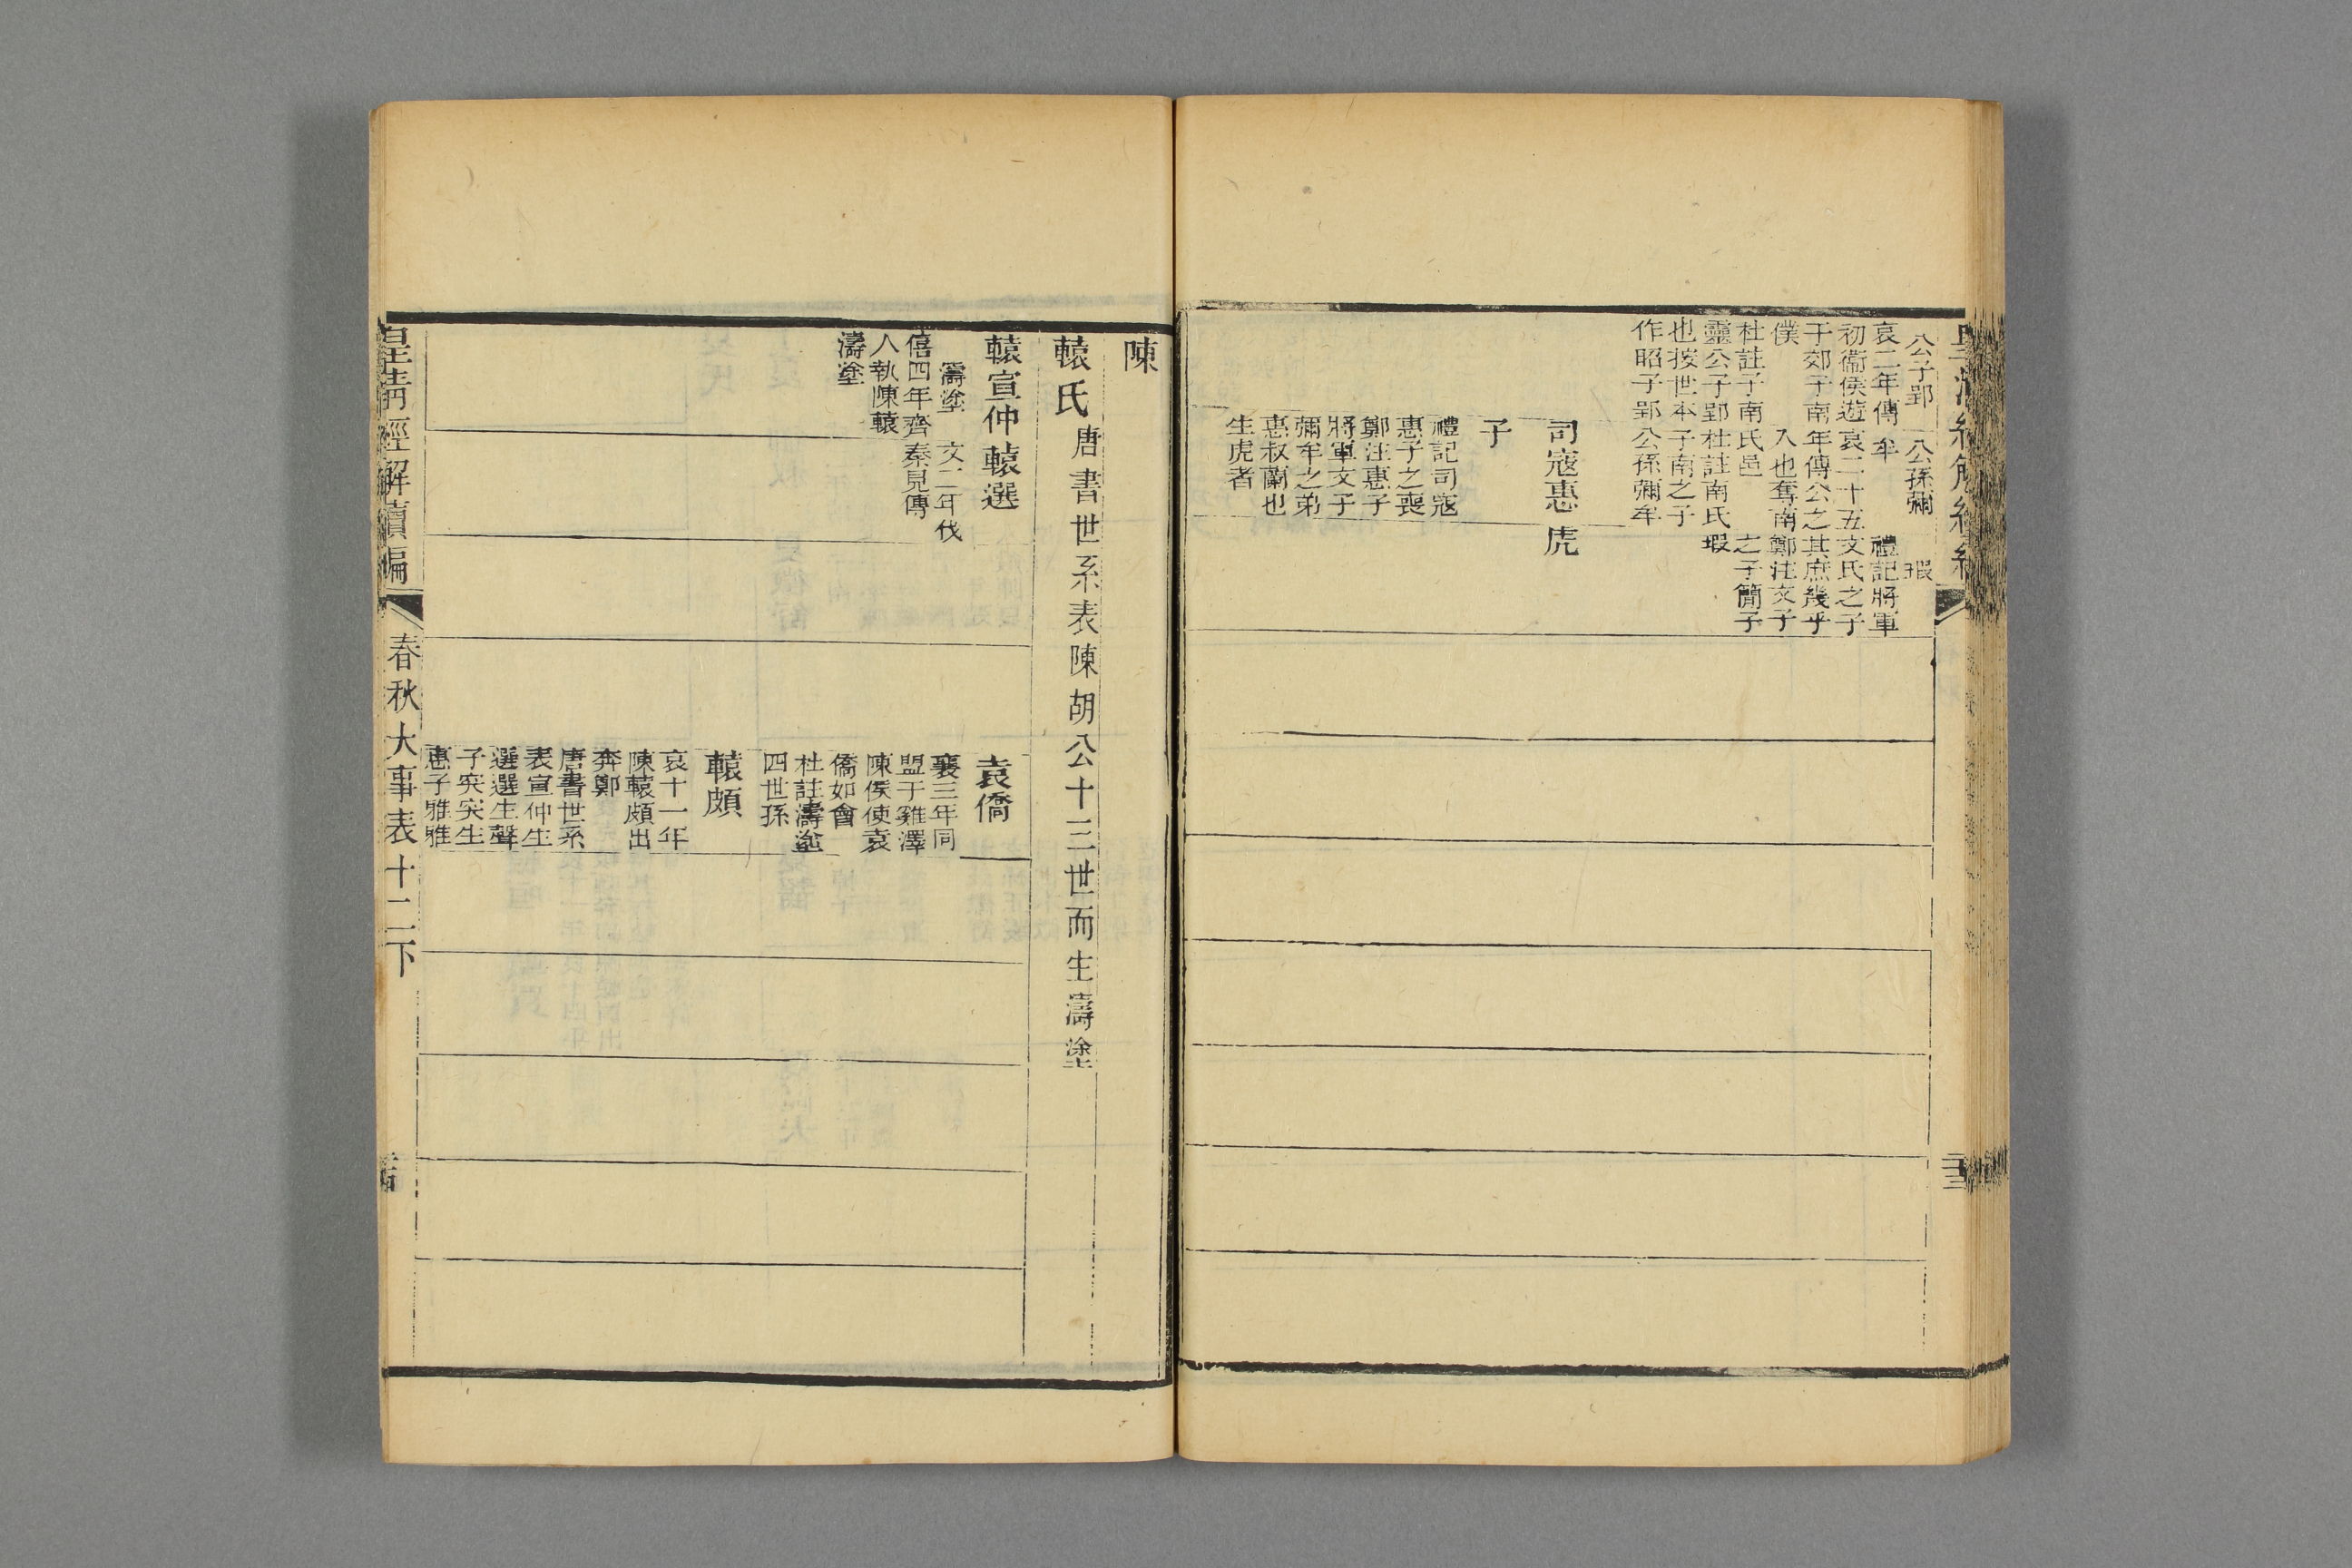 公子郢
哀二年傳
初衞侯遊
于郊子南
僕
杜註子南
靈公子郢
也按世本
作昭子郢
公孫彌
牟
哀二十五
年傳公之
入也奪南
氏邑
杜註南氏
子南之子
公孫彌牟
瑕
禮記將軍
文氏之子
其庶幾乎
鄭注文子
之子簡子
瑕
司寇惠
子
禮記司寇
惠子之喪
鄭注惠子
將軍文子
彌牟之弟
惠叔蘭也
生虎者
虎
陳
轅氏唐書世系表陳胡公十三世而生濤塗
轅宣仲
濤塗
僖四年齊
人執陳轅
濤塗
轅選
文二年伐
秦見傳
袁僑
襄三年同
盟于雞澤
陳侯使袁
僑如會
杜註濤塗
四世孫
轅頗
哀十一年
陳轅頗出
奔鄭
唐書世系
表宣仲生
選選生聲
子突突生
惠子雅雅
皇清經解續編
春秋大事表十二下